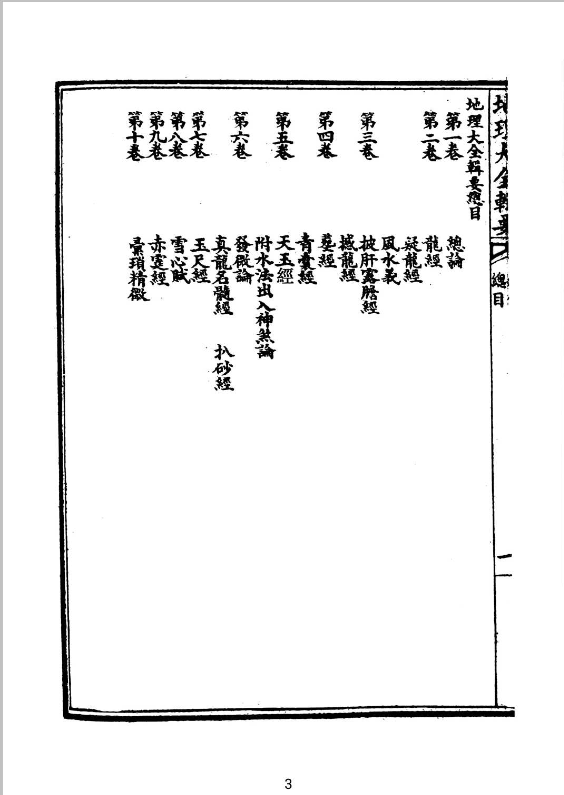 地理大全輯要
總目
一
地理大全輯要總目
第一卷 總論
第二卷 龍經
疑龍經
風水義
第三卷 披肝露膽經
撼龍經
第四卷 葬經
青囊經
第五卷 天玉經
附水法出入神煞論
第六卷 發微論
真龍名髓經 扒砂經
第七卷 玉尺經
第八卷 雪心賦
第九卷 赤霆經
第十卷 瑣精微
3